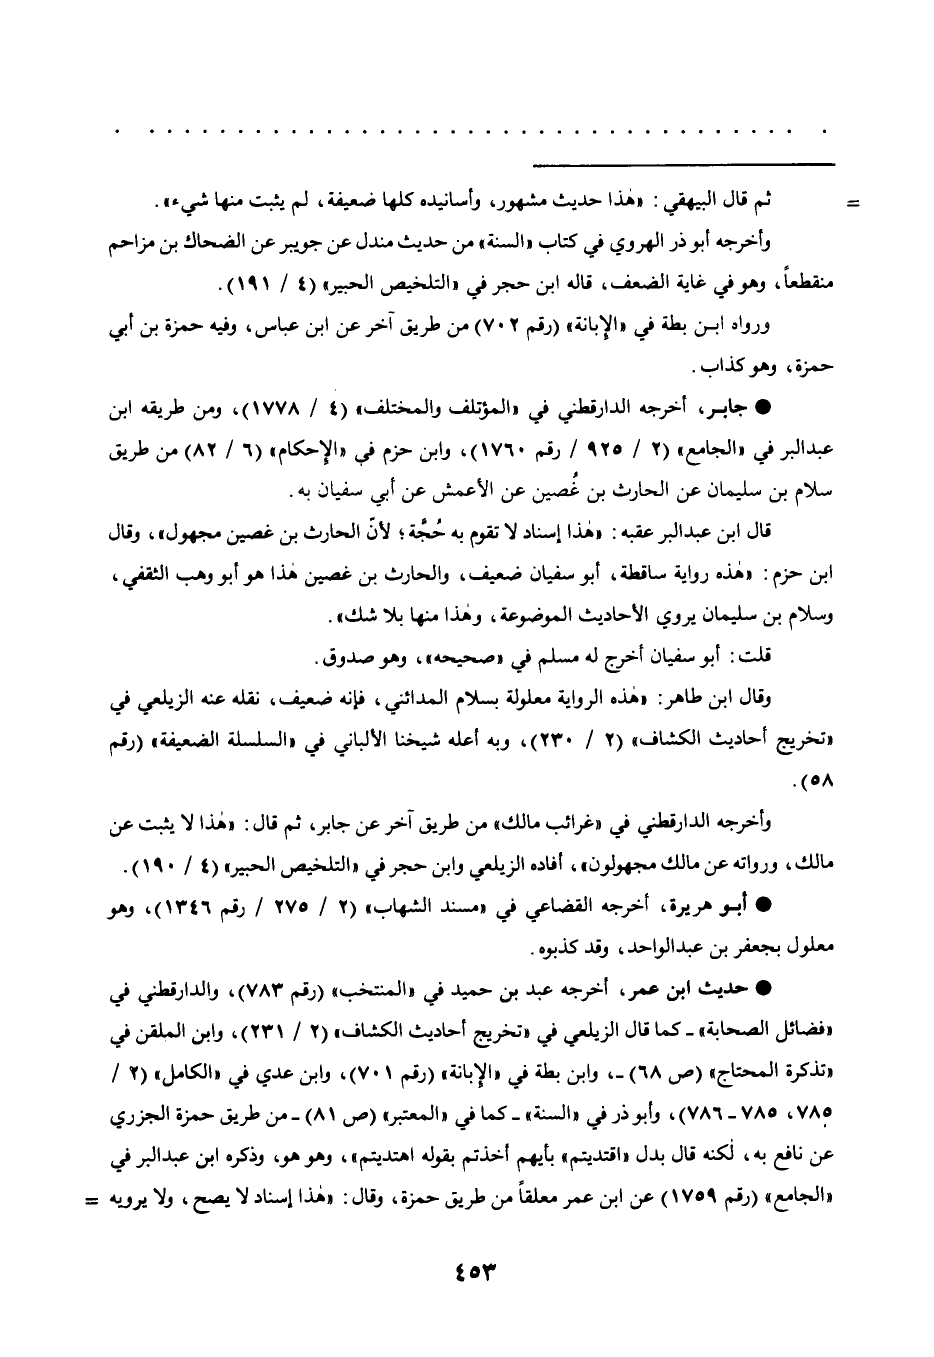 . . . . . . . . . . . . . . . . . . . . . . . . . . . . . . . . . . . . . . .
= ثم قال البيهقي: «هٰذا حديث مشهور، وأسانيده كلها ضعيفة، لم يثبت منها شيء».
وأخرجه أبو ذر الهروي في كتاب «السنة» من حديث مندل عن جويبر عن الضحاك بن مزاحم
منقطعاً، وهو في غاية الضعف، قاله ابن حجر في «التلخيص الحبير» (٤ / ١٩١).
ورواه ابـن بطة في «الإبانة» (رقم ٧٠٢) من طريق آخر عن ابن عباس، وفيه حمزة بن أبي
حمزة، وهو كذاب.
● جابـر، أخرجه الدارقطني في «المؤتلف والمختلف» (٤ / ١٧٧٨)، ومن طريقه ابن
عبدالبر في «الجامع» (٢ / ٩٢٥ / رقم ١٧٦٠)، وابن حزم في «الإحكام» (٦ / ٨٢) من طريق
سلام بن سليمان عن الحارث بن غُصين عن الأعمش عن أبي سفيان به.
قال ابن عبدالبر عقبه: «هٰذا إسناد لا تقوم به حُجَّة؛ لأنّ الحارث بن غصين مجهول»، وقال
ابن حزم: «هٰذه رواية ساقطة، أبو سفيان ضعيف، والحارث بن غصين هٰذا هو أبو وهب الثقفي،
وسلام بن سليمان يروي الأحاديث الموضوعة، وهٰذا منها بلا شك».
قلت: أبو سفيان أخرج له مسلم في «صحيحه»، وهو صدوق.
وقال ابن طاهر: «هٰذه الرواية معلولة بسلام المدائني، فإنه ضعيف، نقله عنه الزيلعي في
«تخريج أحاديث الكشاف» (٢ / ٢٣٠)، وبه أعله شيخنا الألباني في «السلسلة الضعيفة» (رقم
٥٨).
وأخرجه الدارقطني في «غرائب مالك» من طريق آخر عن جابر، ثم قال: «هٰذا لا يثبت عن
مالك، ورواته عن مالك مجهولون»، أفاده الزيلعي وابن حجر في «التلخيص الحبير» (٤ / ١٩٠).
● أبـو هريرة، أخرجه القضاعي في «مسند الشهاب» (٢ / ٢٧٥ / رقم ١٣٤٦)، وهو
معلول بجعفر بن عبدالواحد، وقد كذبوه.
● حديث ابن عمر، أخرجه عبد بن حميد في «المنتخب» (رقم ٧٨٣)، والدارقطني في
«فضائل الصحابة» ـ كما قال الزيلعي في «تخريج أحاديث الكشاف» (٢ / ٢٣١)، وابن الملقن في
«تذكرة المحتاج» (ص ٦٨) ـ، وابن بطة في «الإبانة» (رقم ٧٠١)، وابن عدي في «الكامل» (٢ /
٧٨٥، ٧٨٥ ـ ٧٨٦)، وأبو ذر في «السنة» ـ كما في «المعتبر» (ص ٨١) ـ من طريق حمزة الجزري
عن نافع به، لٰكنه قال بدل «اقتديتم» بأيهم أخذتم بقوله اهتديتم»، وهو هو، وذكره ابن عبدالبر في
«الجامع» (رقم ١٧٥٩) عن ابن عمر معلقاً من طريق حمزة، وقال: «هٰذا إسناد لا يصح، ولا يرويه =
٤٥٣